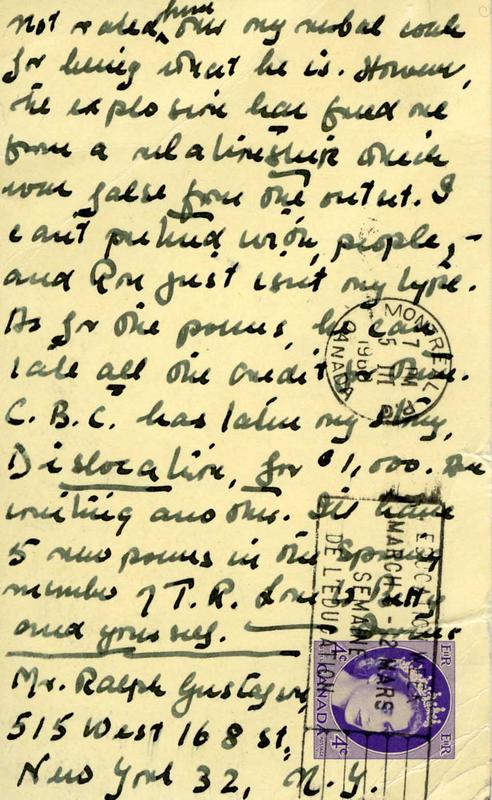 him
not rated over my verbal
for being what he is. However,
the explosion has freed me
from a relationship which
was false from the outset. I
can't pretend with people,-
and Ron just isn't my type.
As for the poems, he can
take all the credit for them.
C.B.C. has taken my story,
Dislocation, for $1,000. Am
writing another. I'll have
5 new poems in the Spring
number of T.R. Love to Betty
and yourself.
Mr. Ralph Gustafson,
515 West 168 St,
New York 32, N.Y.
MONTREAL
7 PM
5 III
1960
CANADA
EDUCATION
MARCH 6-12 MARS
SEMAINE
DE L'EDUCATION
EIIR
EIIR
4c
4c
CANADA